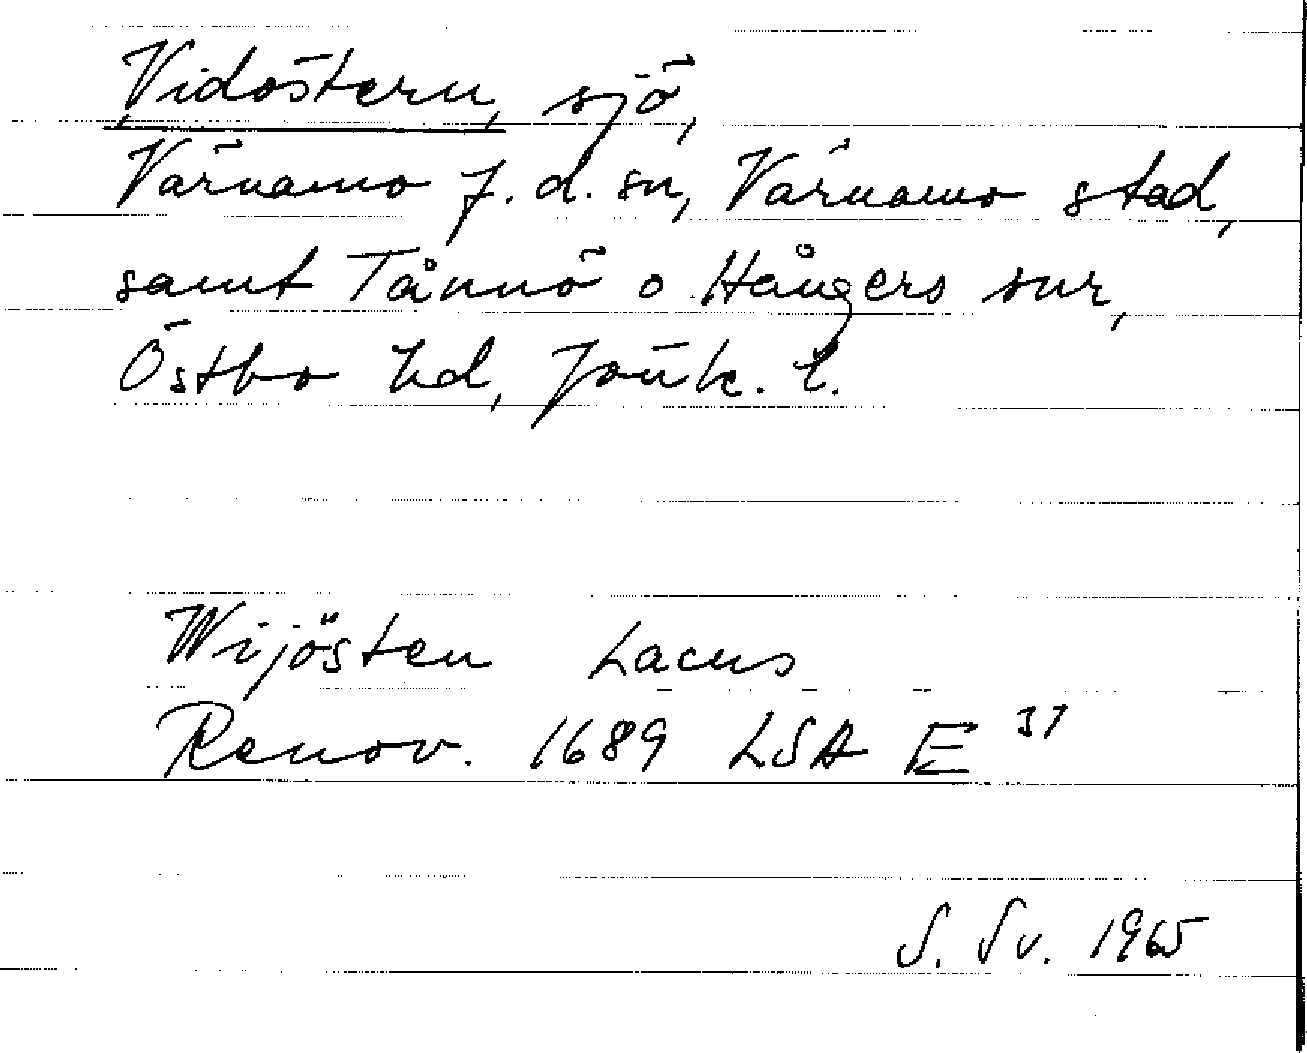 Vidöstern, sjö,
Värnamo f.d. sn, Värnamo stad,
samt Tånnö o Hångers snr,
Östbo hd, Jönk. l.
Wijösten Lacus
Renov. 1689 LSA E 37
S. Sv. 1965